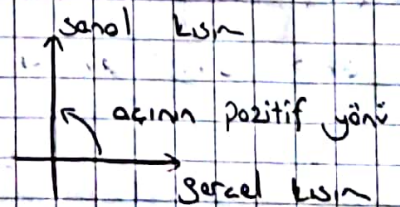 sanal kısım
açının pozitif yönü
gerçel kısım